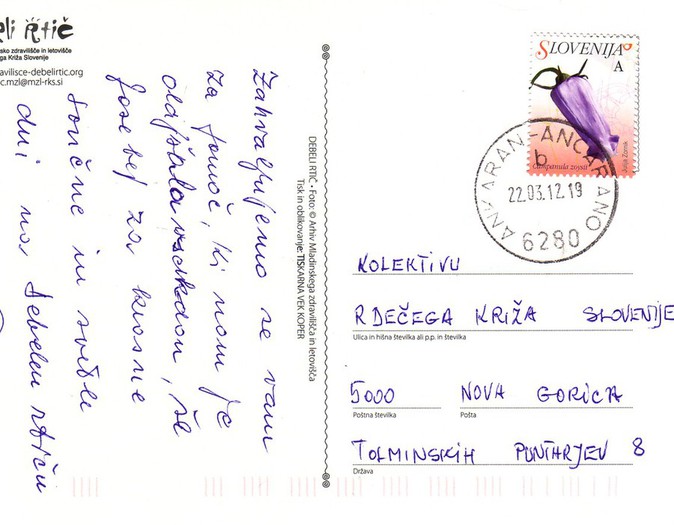 eli Rtič
sko zdravilišče in letovišče
ga Križa Slovenije
avilisce-debelirtic.org
c.mzl@mzl-rks.si
Zahvaljujemo se vam
za pomoč, ki nam je
olajšala vsakdan, še
posebej za krasne
sončne in svetle
dni na Debelem rtiču
DEBELI RTIČ • Foto: © Arhiv Mladinskega zdravilišča in letovišča
Tisk in oblikovanje: TISKARNA VEK KOPER
SLOVENIJA
A
Campanula zoysii
ANKARAN-ANCARANO
b
22.03.12.19
6280
KOLEKTIVU
RDEČEGA KRIŽA SLOVENIJE
Ulica in hišna številka ali p.p. in številka
5000 NOVA GORICA
Poštna številka Pošta
TOLMINSKIH PUNTARJEV 8
Država